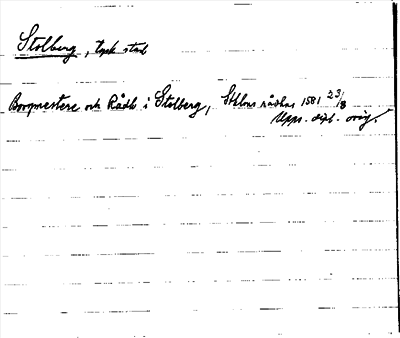 Stolberg, tysk stad
Borgmestere och Rådh i Stolberg, Stlbns rådhus 1581 23/8
Upps. dipl. orig.